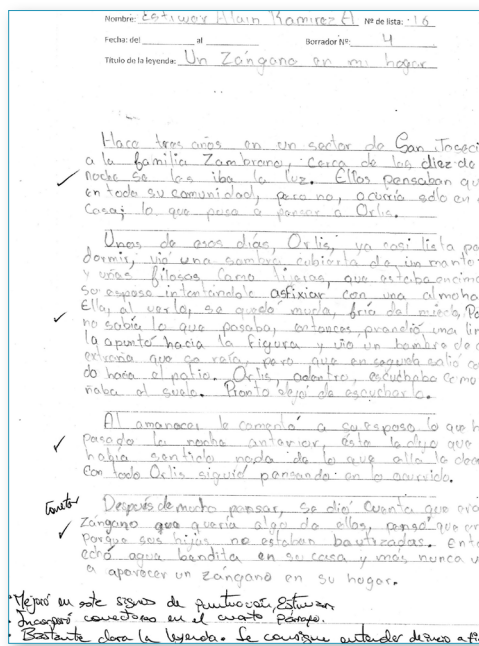 Nombre: Estiwar Alain Ramirez A Nº de lista: 16
Fecha: del al Borrador Nº: 4
Título de la leyenda: Un Zángano en mi hogar
Hace tres años en un sector de San
a la familia Zambrano, cerca de las diez de
noche se les iba la luz. Ellos pensaban qu
en todo su comunidad, pero no, ocurría sólo en
Casa; lo que puso a pensar a Orlis.
Unos de esos días, Orlis, ya casi lista pa
dormir, vió una sombra cubierta de un manto
y uñas filosas como tijeras, que estaba encima
su esposo intentándole asfixiar con una almoha
Ella, al verlo, se quedó muda, fría del miedo, Po
no sabía lo que pasaba, entonces, prendió una lin
la apuntó hacia la figura y vio un hombre de c
extraña que se reía, pero que en seguida salió co
do hacia el patio. Orlis, adentro, escuchaba como
ñaba al suelo. Pronto dejó de escucharlo.
Al amanecer le comentó a su esposo lo que h
pasado la noche anterior, éste le dijo que
había sentido nada de lo que ella le decía
Con todo Orlis siguió pensando en lo ocurrido.
Después de mucho pensar, se dió cuenta que era
zángano que quería algo de ellos, pensó que er
porque sus hijos no estaban bautizados. Ento
echó agua bendita en su casa y más nunca v
a aparecer un zángano en su hogar.
Mejoró en este signos de puntuación, Estiwar
Incorporó conectores en el cuarto párrafo.
Bastante clara la leyenda. Se consigue entender de inicio a fi